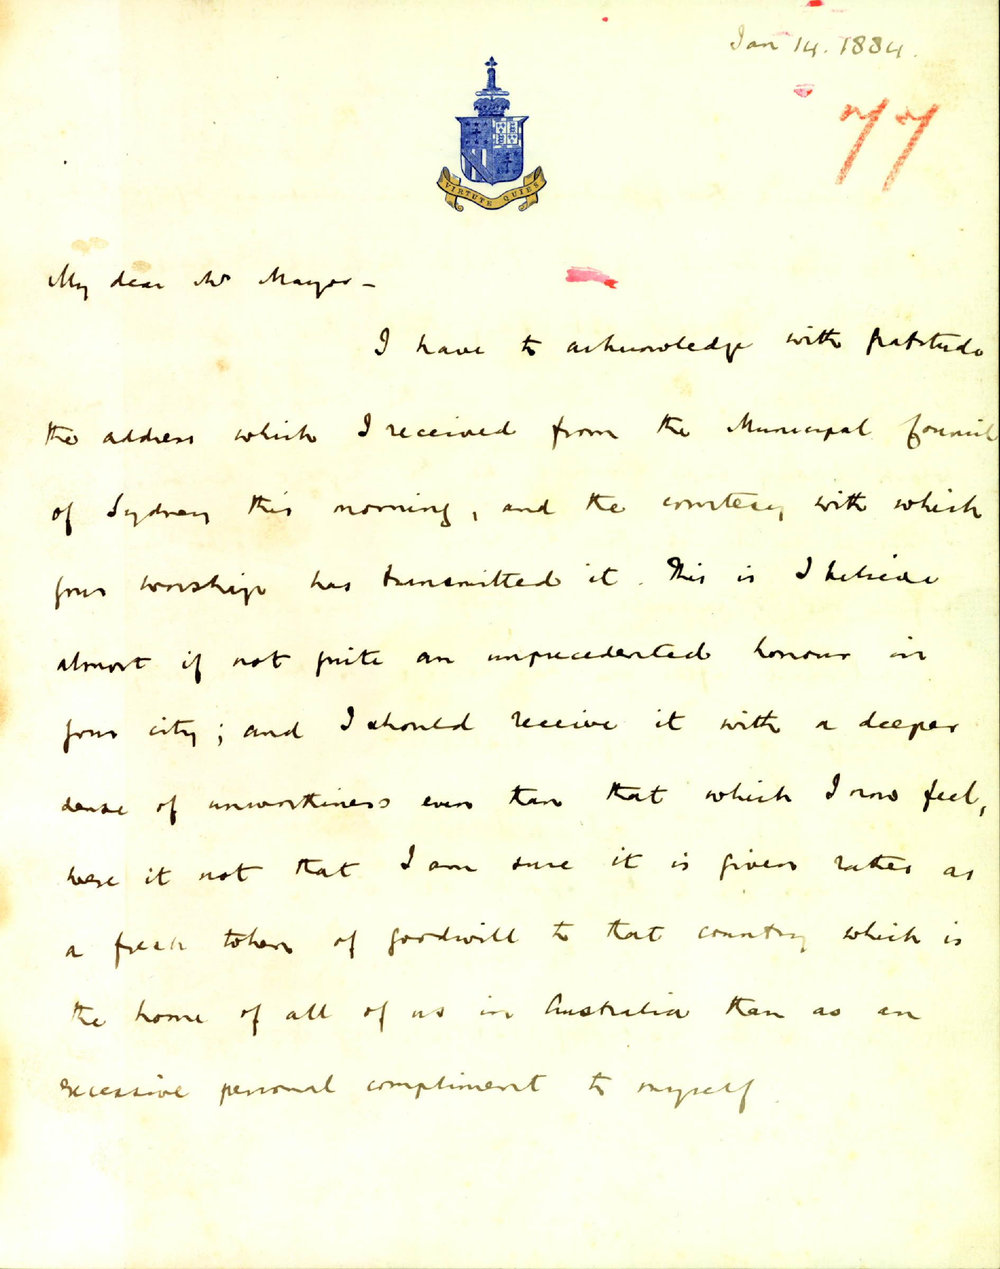 Jan 14. 1884.
77
VIRTUTE QUIES
My dear Mr Mayor –
I have to acknowledge with gratitude
the address which I received from the Municipal Council
of Sydney this morning, and the courtesy with which
your worship has transmitted it. This is I believe
almost if not quite an unprecedented honour in
your city; and I should receive it with a deeper
sense of unworthiness even than that which I now feel,
were it not that I am sure it is given rather as
a fresh token of goodwill to that country which is
the home of all of us in Australia than as an
excessive personal compliment to myself.